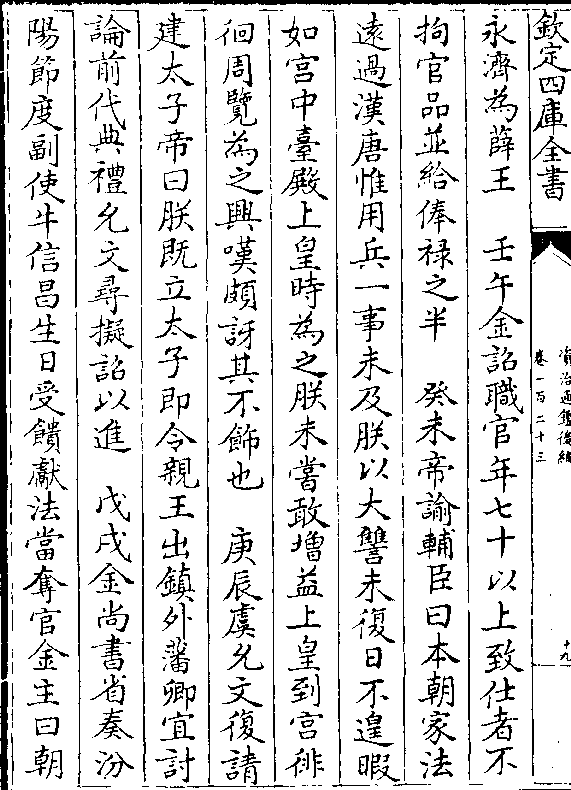 欽定四庫全書
資治通鑑後編
卷一百二十三
十九
永濟為薛王　壬午金詔職官年七十以上致仕者不
拘官品並給俸禄之半　癸未帝諭輔臣曰本朝家法
遠過漢唐惟用兵一事未及朕以大讐未復日不遑暇
如宫中臺殿上皇時為之朕未嘗敢增益上皇到宫徘
徊周覽為之興嘆頗訝其不飾也　庚辰虞允文復請
建太子帝曰朕既立太子即令親王出鎮外藩卿宜討
論前代典禮允文尋擬詔以進　戊戌金尚書省奏汾
陽節度副使牛信昌生日受饋獻法當奪官金主曰朝